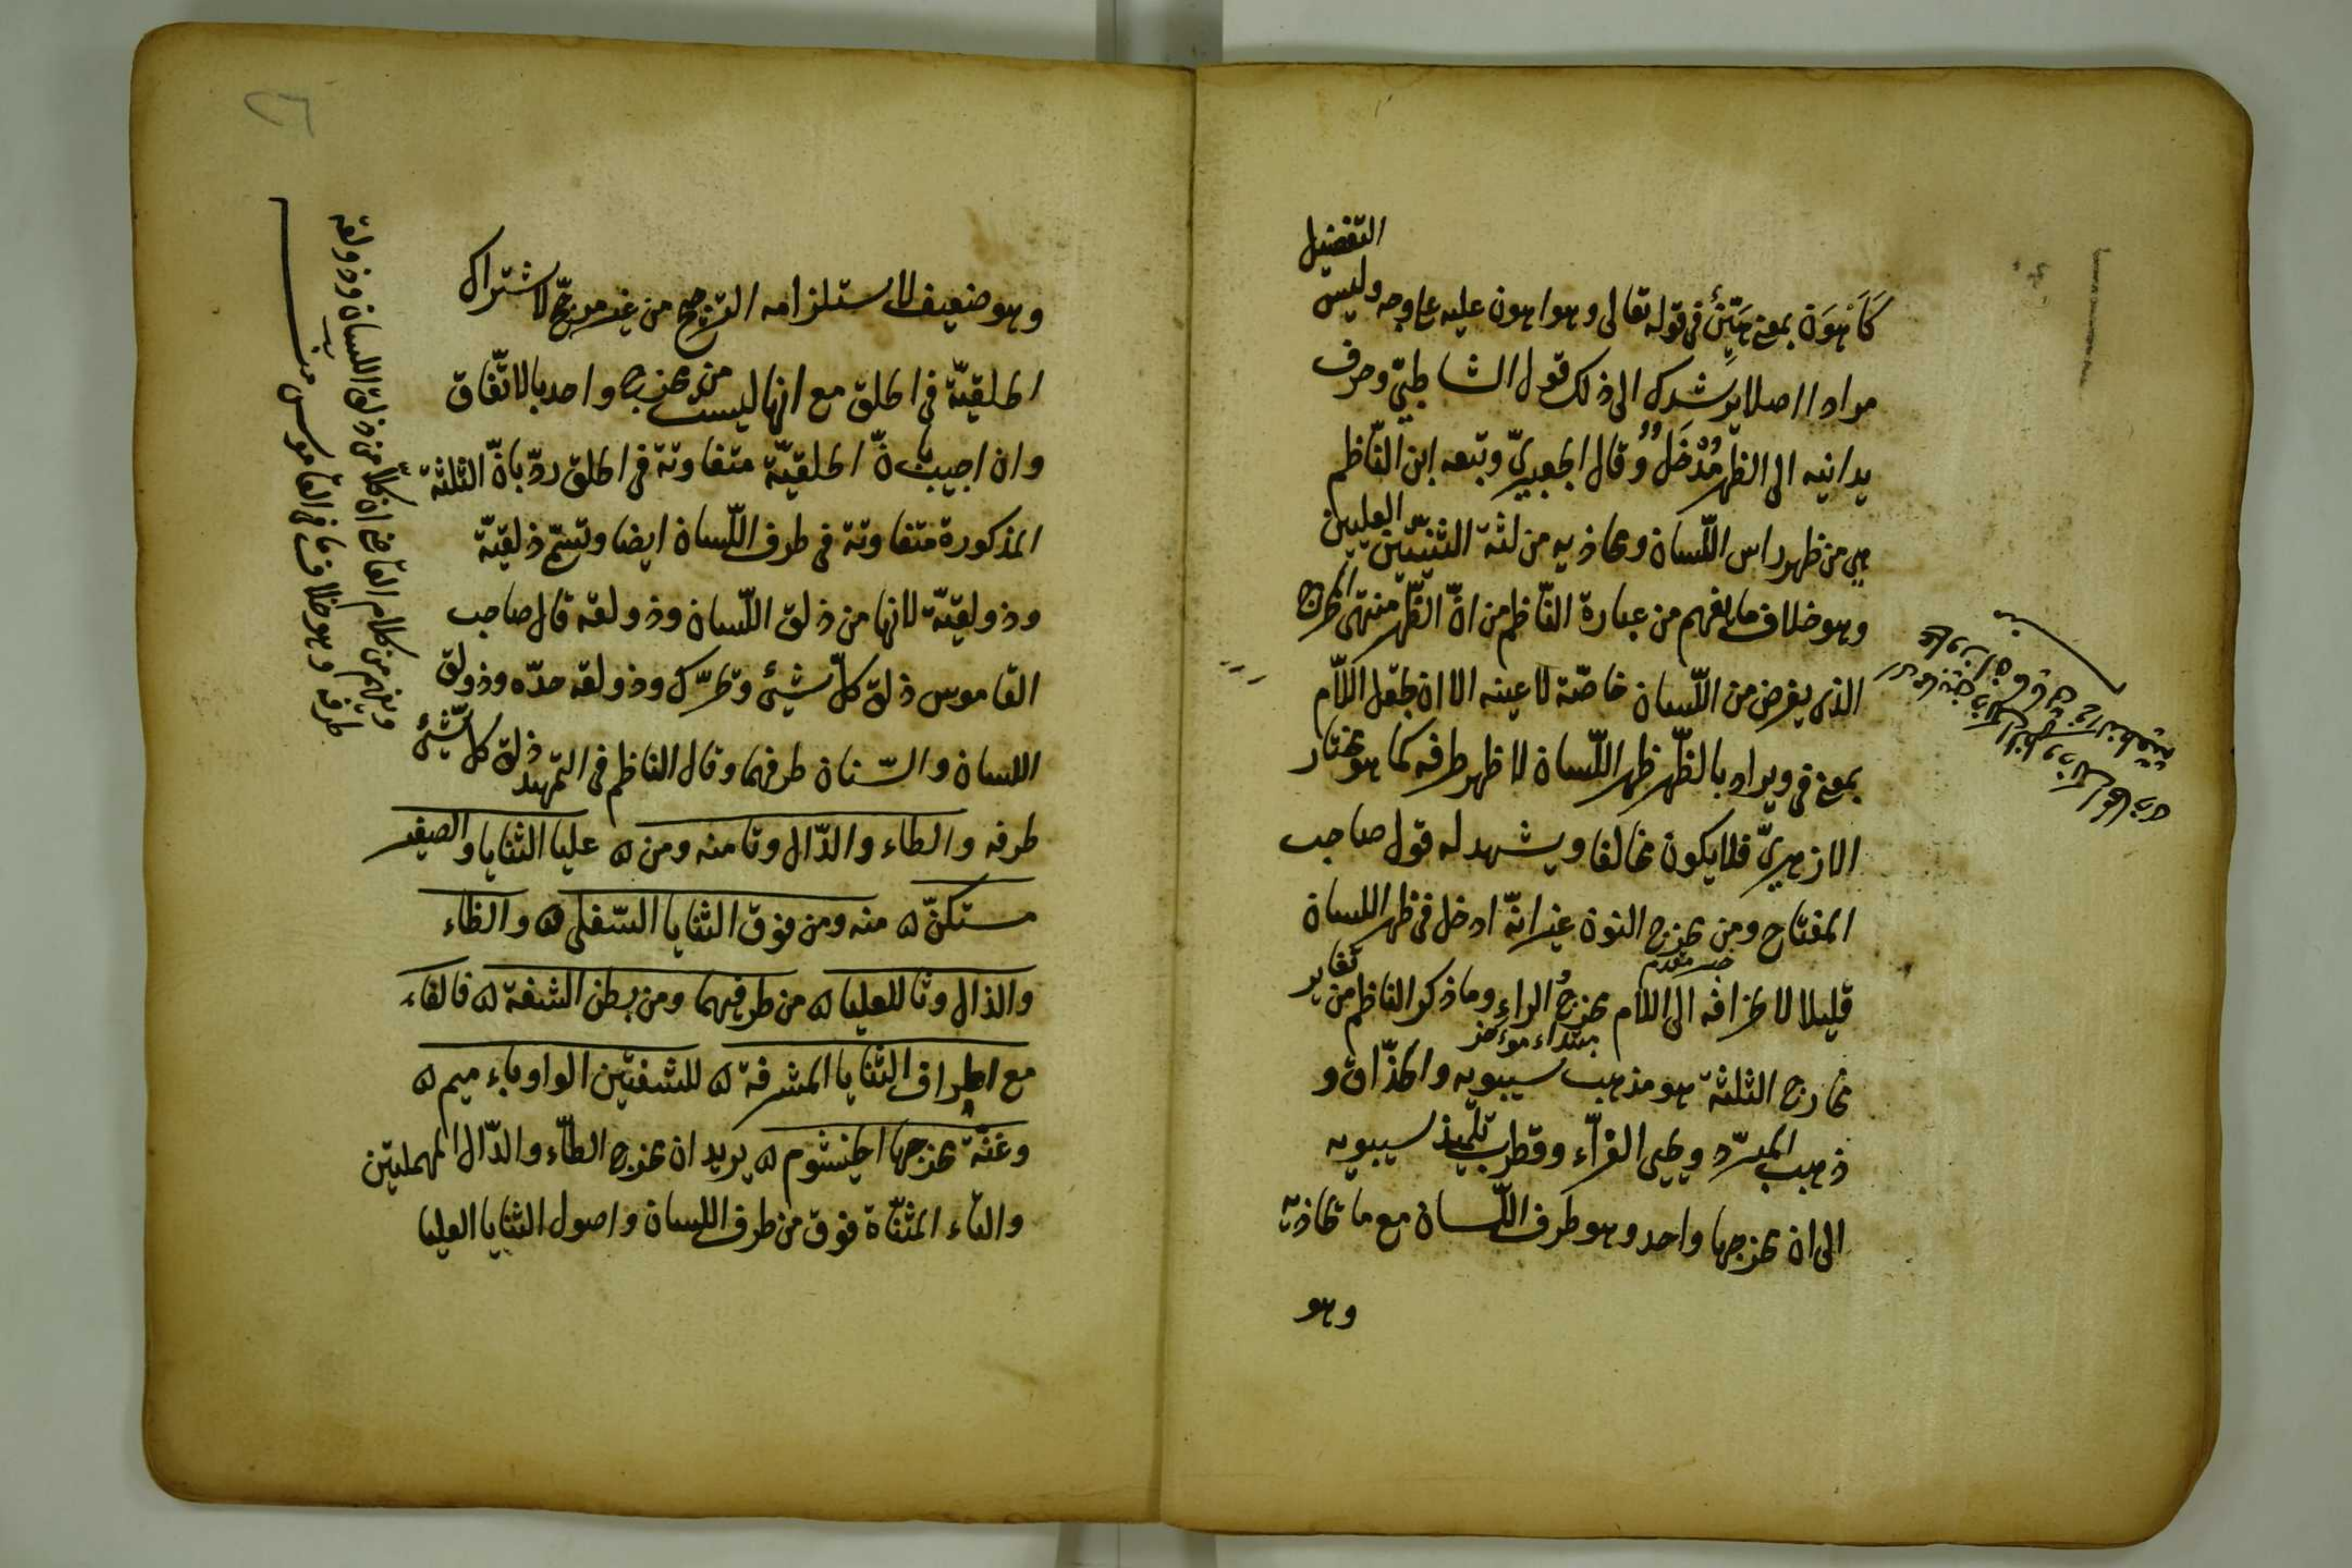 التفضيل
كَأَهْوَن بمعنى هَيِّنٌ في قوله تعالى وهو اهون عليه على وجه وليس
مرادا اصلا يرشدك الى ذلك قول الشاطبيّ وحرف
يدانيه الى الظهر مُدْخَلٌ وقال الجعبريّ وتبعه ابن النّاظم
هي من ظهر راس اللّسان ومحاذيه من لثة الثنيّتين العليين
وهو خلاف ما يفهم من عبارة النّاظم من انّ الظّهر منتهى المخرج
الذي يفرض من اللّسان خاصّة لا عينه الا ان يجعل اللّام
بمعنى في ويراد بالظّهر ظهر اللّسان لا ظهر طرفه كما هو مختار
الازهريّ فلا يكون مخالفا ويشهد له قول صاحب
المفتاح ومن مخرج النون غير انّه ادخل في ظهر اللسان
خبر مقدم
قليلا لانحرافه الى اللام مخرجُ الراء وما ذكر الناظم من تغاير
مبتداء مؤخر
مخارج الثلثة هو مذهب سيبويه والحذّاق و
ذهب المبرّد ويحيى الفرّاء وقطرب تلميذ سيبويه
الى ان مخرجها واحد وهو طرف اللّسان مع ما تحاذيه
وهو
٢٦
وهو ضعيف لاستلزامه الترجيح من غير مرجّح لاشتراك
الحلقيّة في الحلق مع انها ليست من مخرج واحد بالاتّفاق
وان اجيب بانّ الحلقيّة متفاوتة في الحلق ردّ بانّ الثلثة
المذكورة متفاوتة في طرف اللّسان ايضا وتسمّى ذلقيّة
وذولقيّة لانها من ذلق اللّسان وذولقه قال صاحب
القاموس ذلق كلّ شيئ وتحرّك وذولقه حدّه وذولق
اللسان والسّنان طرفهما وقال الناظم في التّمهيد ذلق كل شيئ
طرفه والطاء والدّال وتا منه ومن ۵ عليا الثنايا والصفير
مستكنّ ۵ منه ومن فوق الثنايا السّفلى ۵ والظاء
والذال وثا للعليا ۵ من طرفيهما ومن بطن الشفة ۵ فالفاء
مع اطراف الثنايا المشرفة ۵ للشفتين الواو باء ميم ۵
وغنّة مخرجها الخيشوم ۵ يريد ان مخرج الطّاء والدّال المهملتين
والتاء المثنّاة فوق من طرف اللسان واصول الثنايا العليا
ويفهم من كلام القاضي ان كلاّ من ذلق اللسان وذولقه
طرفه وهو خلاف ما في القاموس